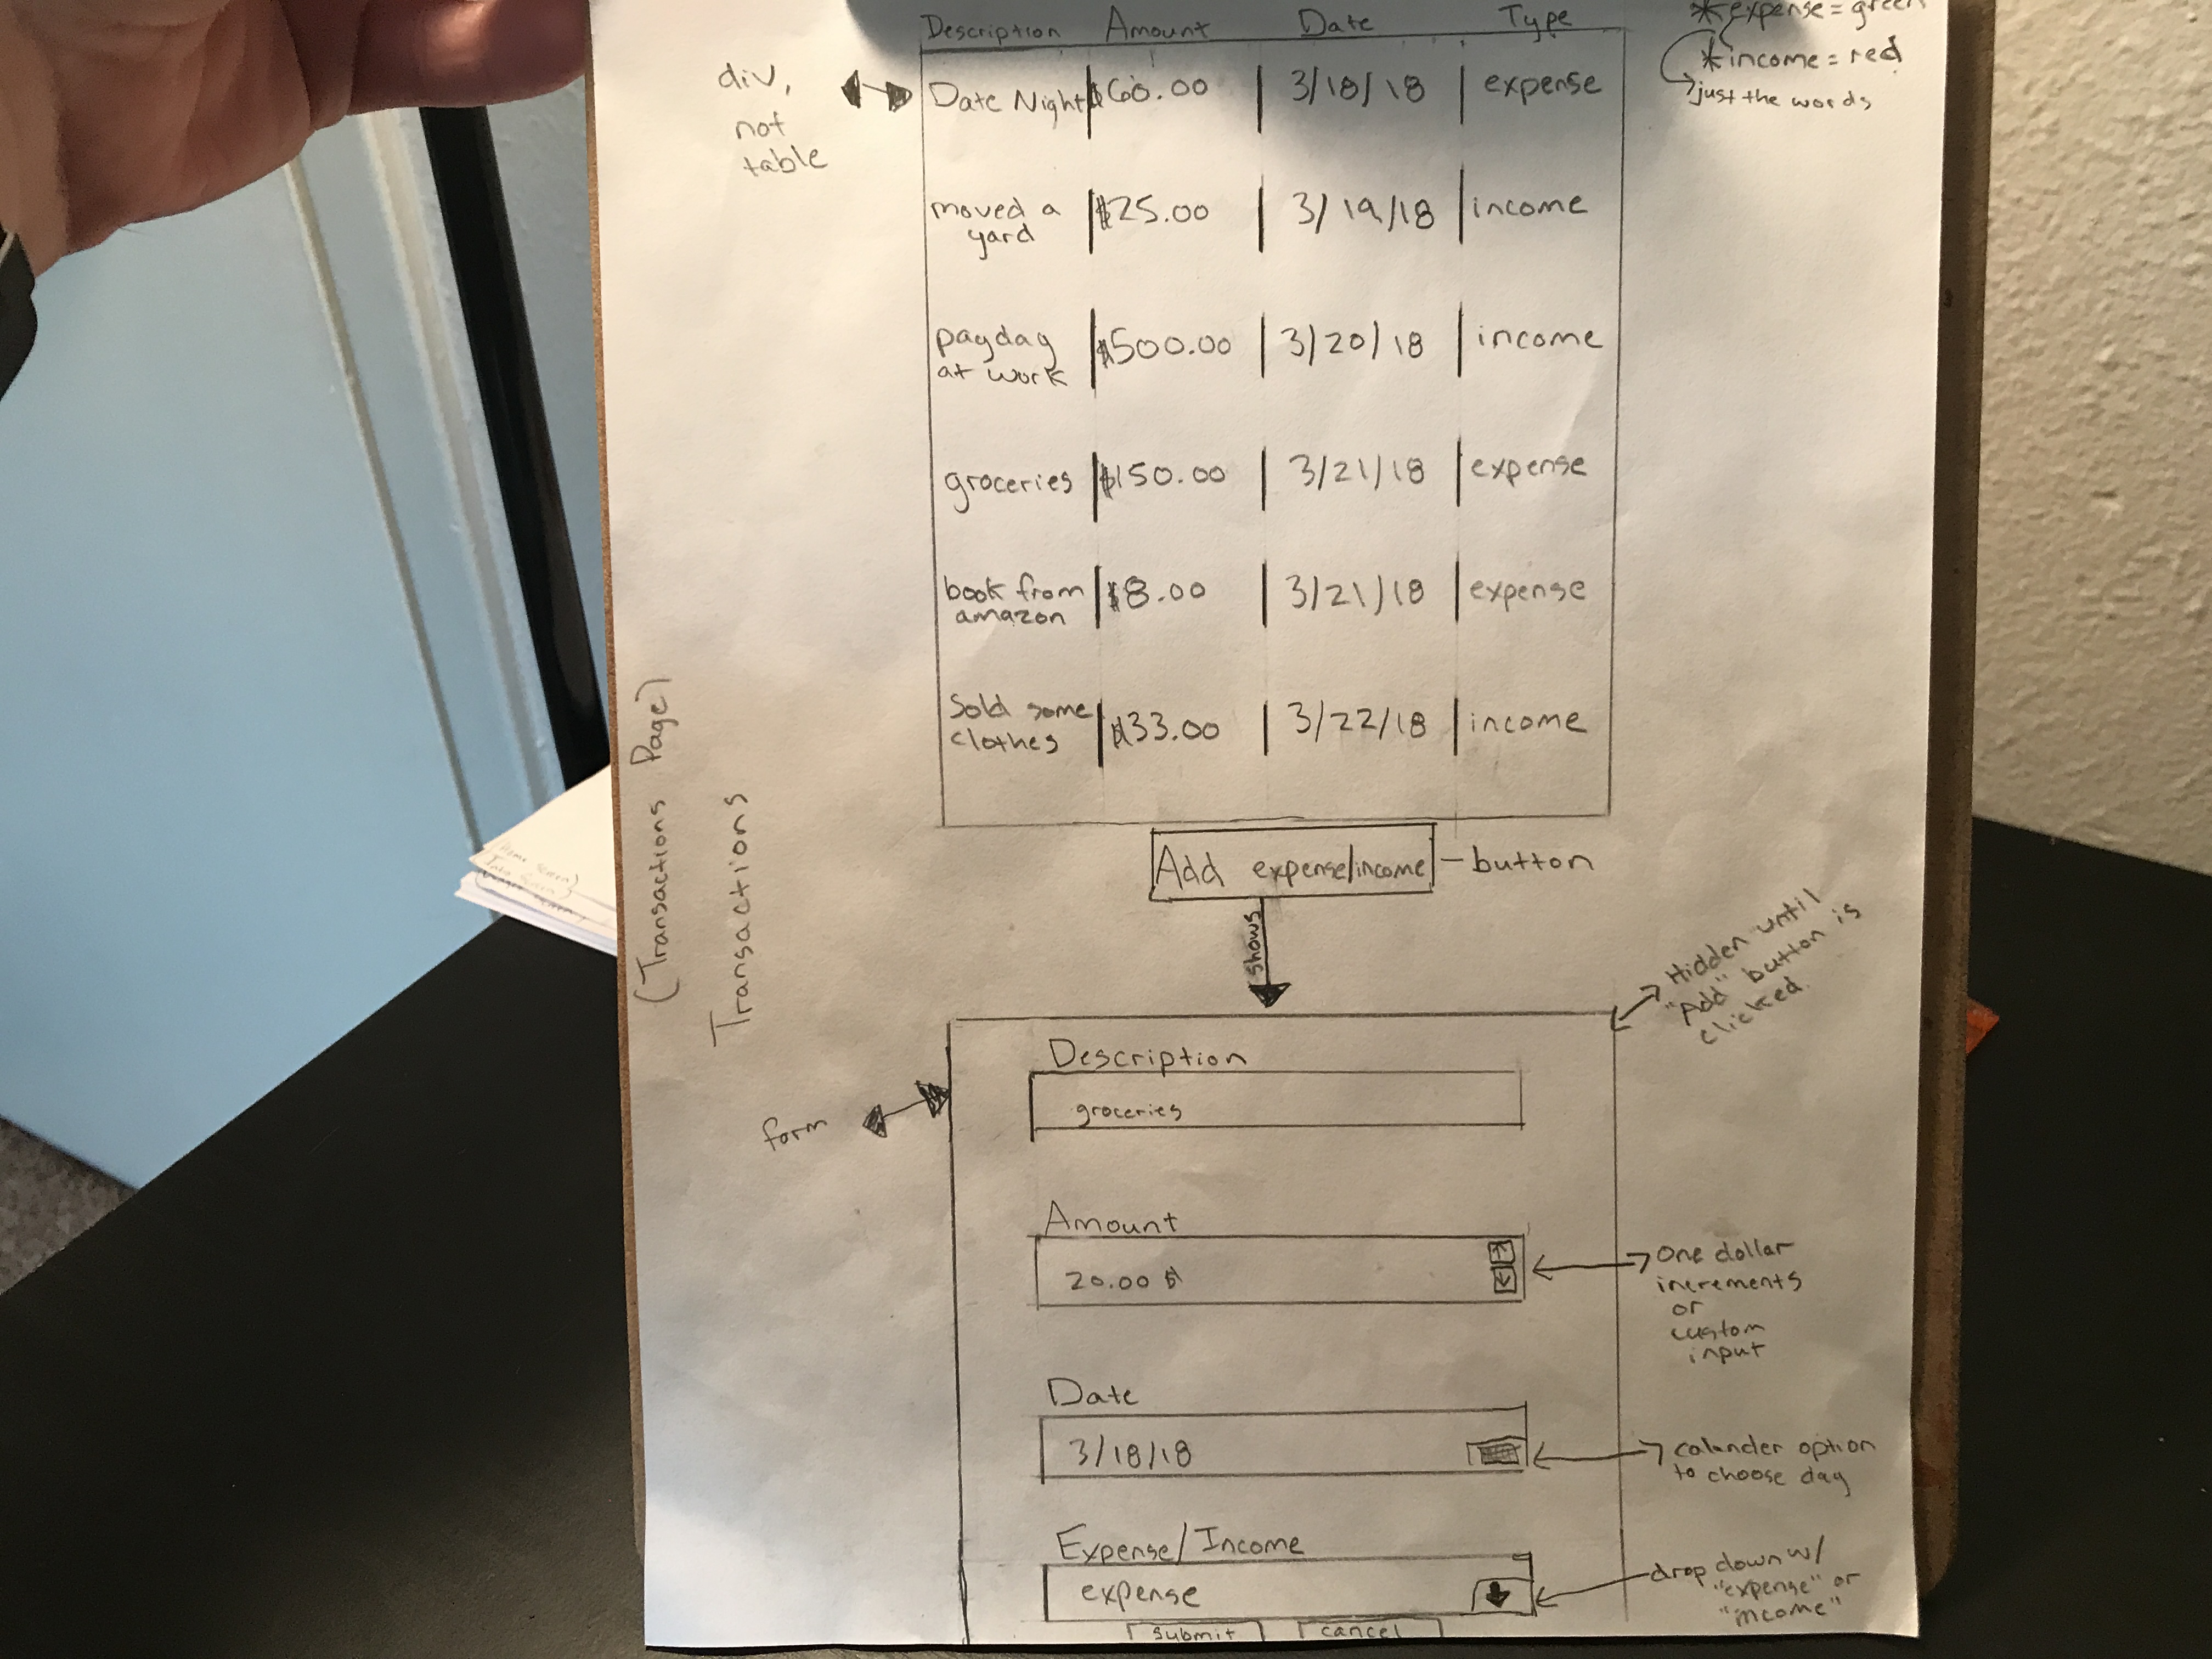 Description Amount Date Type
*expense = green
*income = red
just the words
div,
not
table
Date Night $60.00 3/18/18 expense
moved a
yard
$25.00 3/19/18 income
payday
at work
$500.00 3/20/18 income
groceries $150.00 3/21/18 expense
book from
amazon
$8.00 3/21/18 expense
Sold some
clothes
$33.00 3/22/18 income
(Transactions Page)
Transactions
Add expense/income - button
shows
Hidden until
"Add" button is
clicked.
form
Description
groceries
Amount
20.00 $
One dollar
increments
or
custom
input
Date
3/18/18
calander option
to choose day
Expense/Income
expense
drop down w/
"expense" or
"income"
submit cancel